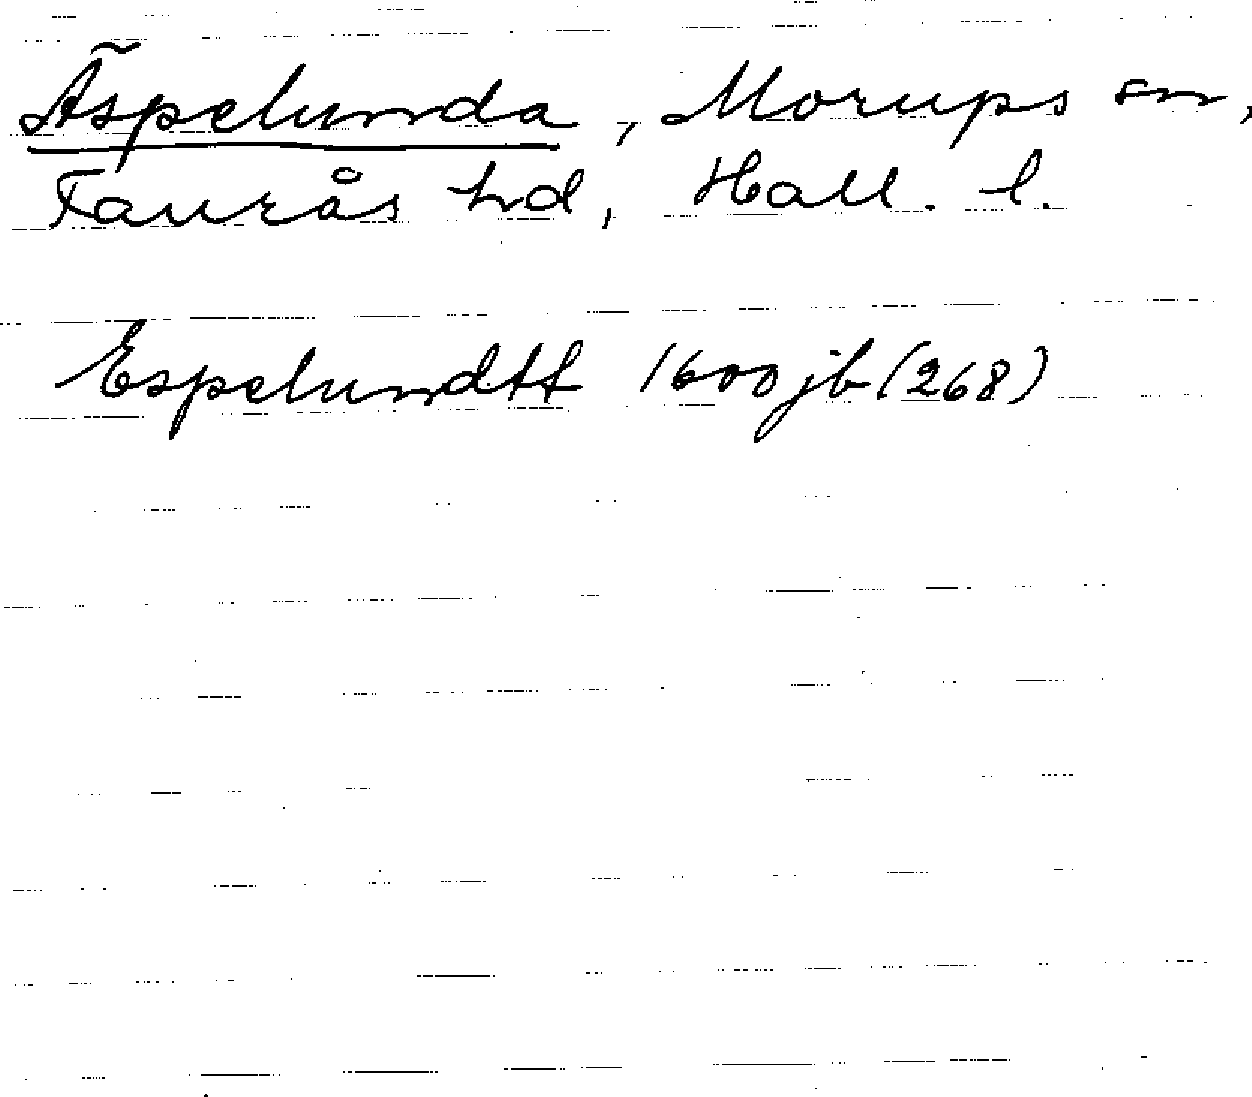 Äspelunda, Morups sn,
Faurås hd, Hall. l.
Espelundtt 1600 jb (268)